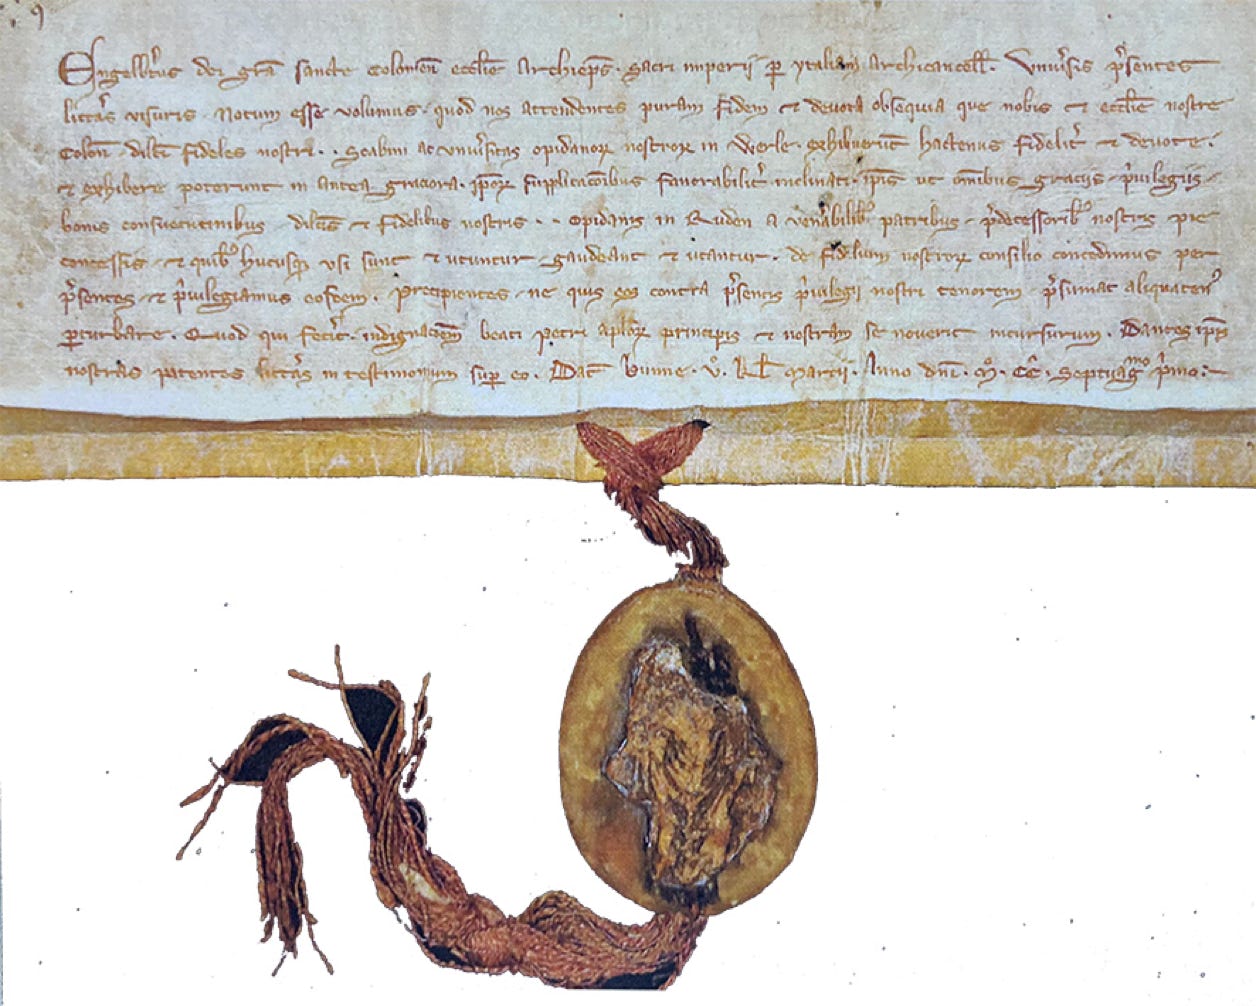 Engelb't'us dei gr̄a sancte Colonień eccl̄ie Archiep̄s. Sacri imperii p̱ ytaliam Archicancell̄. Vniu'sis p'sentes
litt'as visuris Notum esse volumus. quod nos attendentes puram fidem ⁊ deuota obsequia que nobis ⁊ eccl̄ie nostre
Coloñ. dilc̄i fideles nostri. . Scabini ac vniu'sitas opidanoꝝ nostroꝝ in Werle. exhibuerūt hactenus fidelit' ⁊ deuote.
⁊ exhibere poterunt in antea graciora. ip̄oꝝ supplicac̄oibus fauorabilit' inclinati. ip̄is ut om̄ibus graciis p'uilegiis
bonis consuetudinibus dilc̄is ⁊ fidelibus nostris . . Opidanis in Ruden a ven'abilib' patribus p'decessorib' nostris pie
concessis. ⁊ quib' hucusqꝫ vsi sunt ⁊ utuntur gaudeant ⁊ utantur. de fidelium nostroꝝ consilio concedimus per
p'sentes ⁊ p'uilegiamus eosdem. Precipientes ne quis eos contra p'sentis p'uilegii nostri tenorem p'sumat aliquaten'
ꝑturbare. Quod qui fec'it. indignac̄oem beati Petri ap̄loꝝ principis ⁊ nostram se nouerit incursurum. Dantes ip̄is
nostras patentes litt'as in testimonium sup̱ eo. Dat̄ Bunne. v°. kl̄ Martii. Anno dn̄i. M°. CC̄. Septuag̊ p'mo.